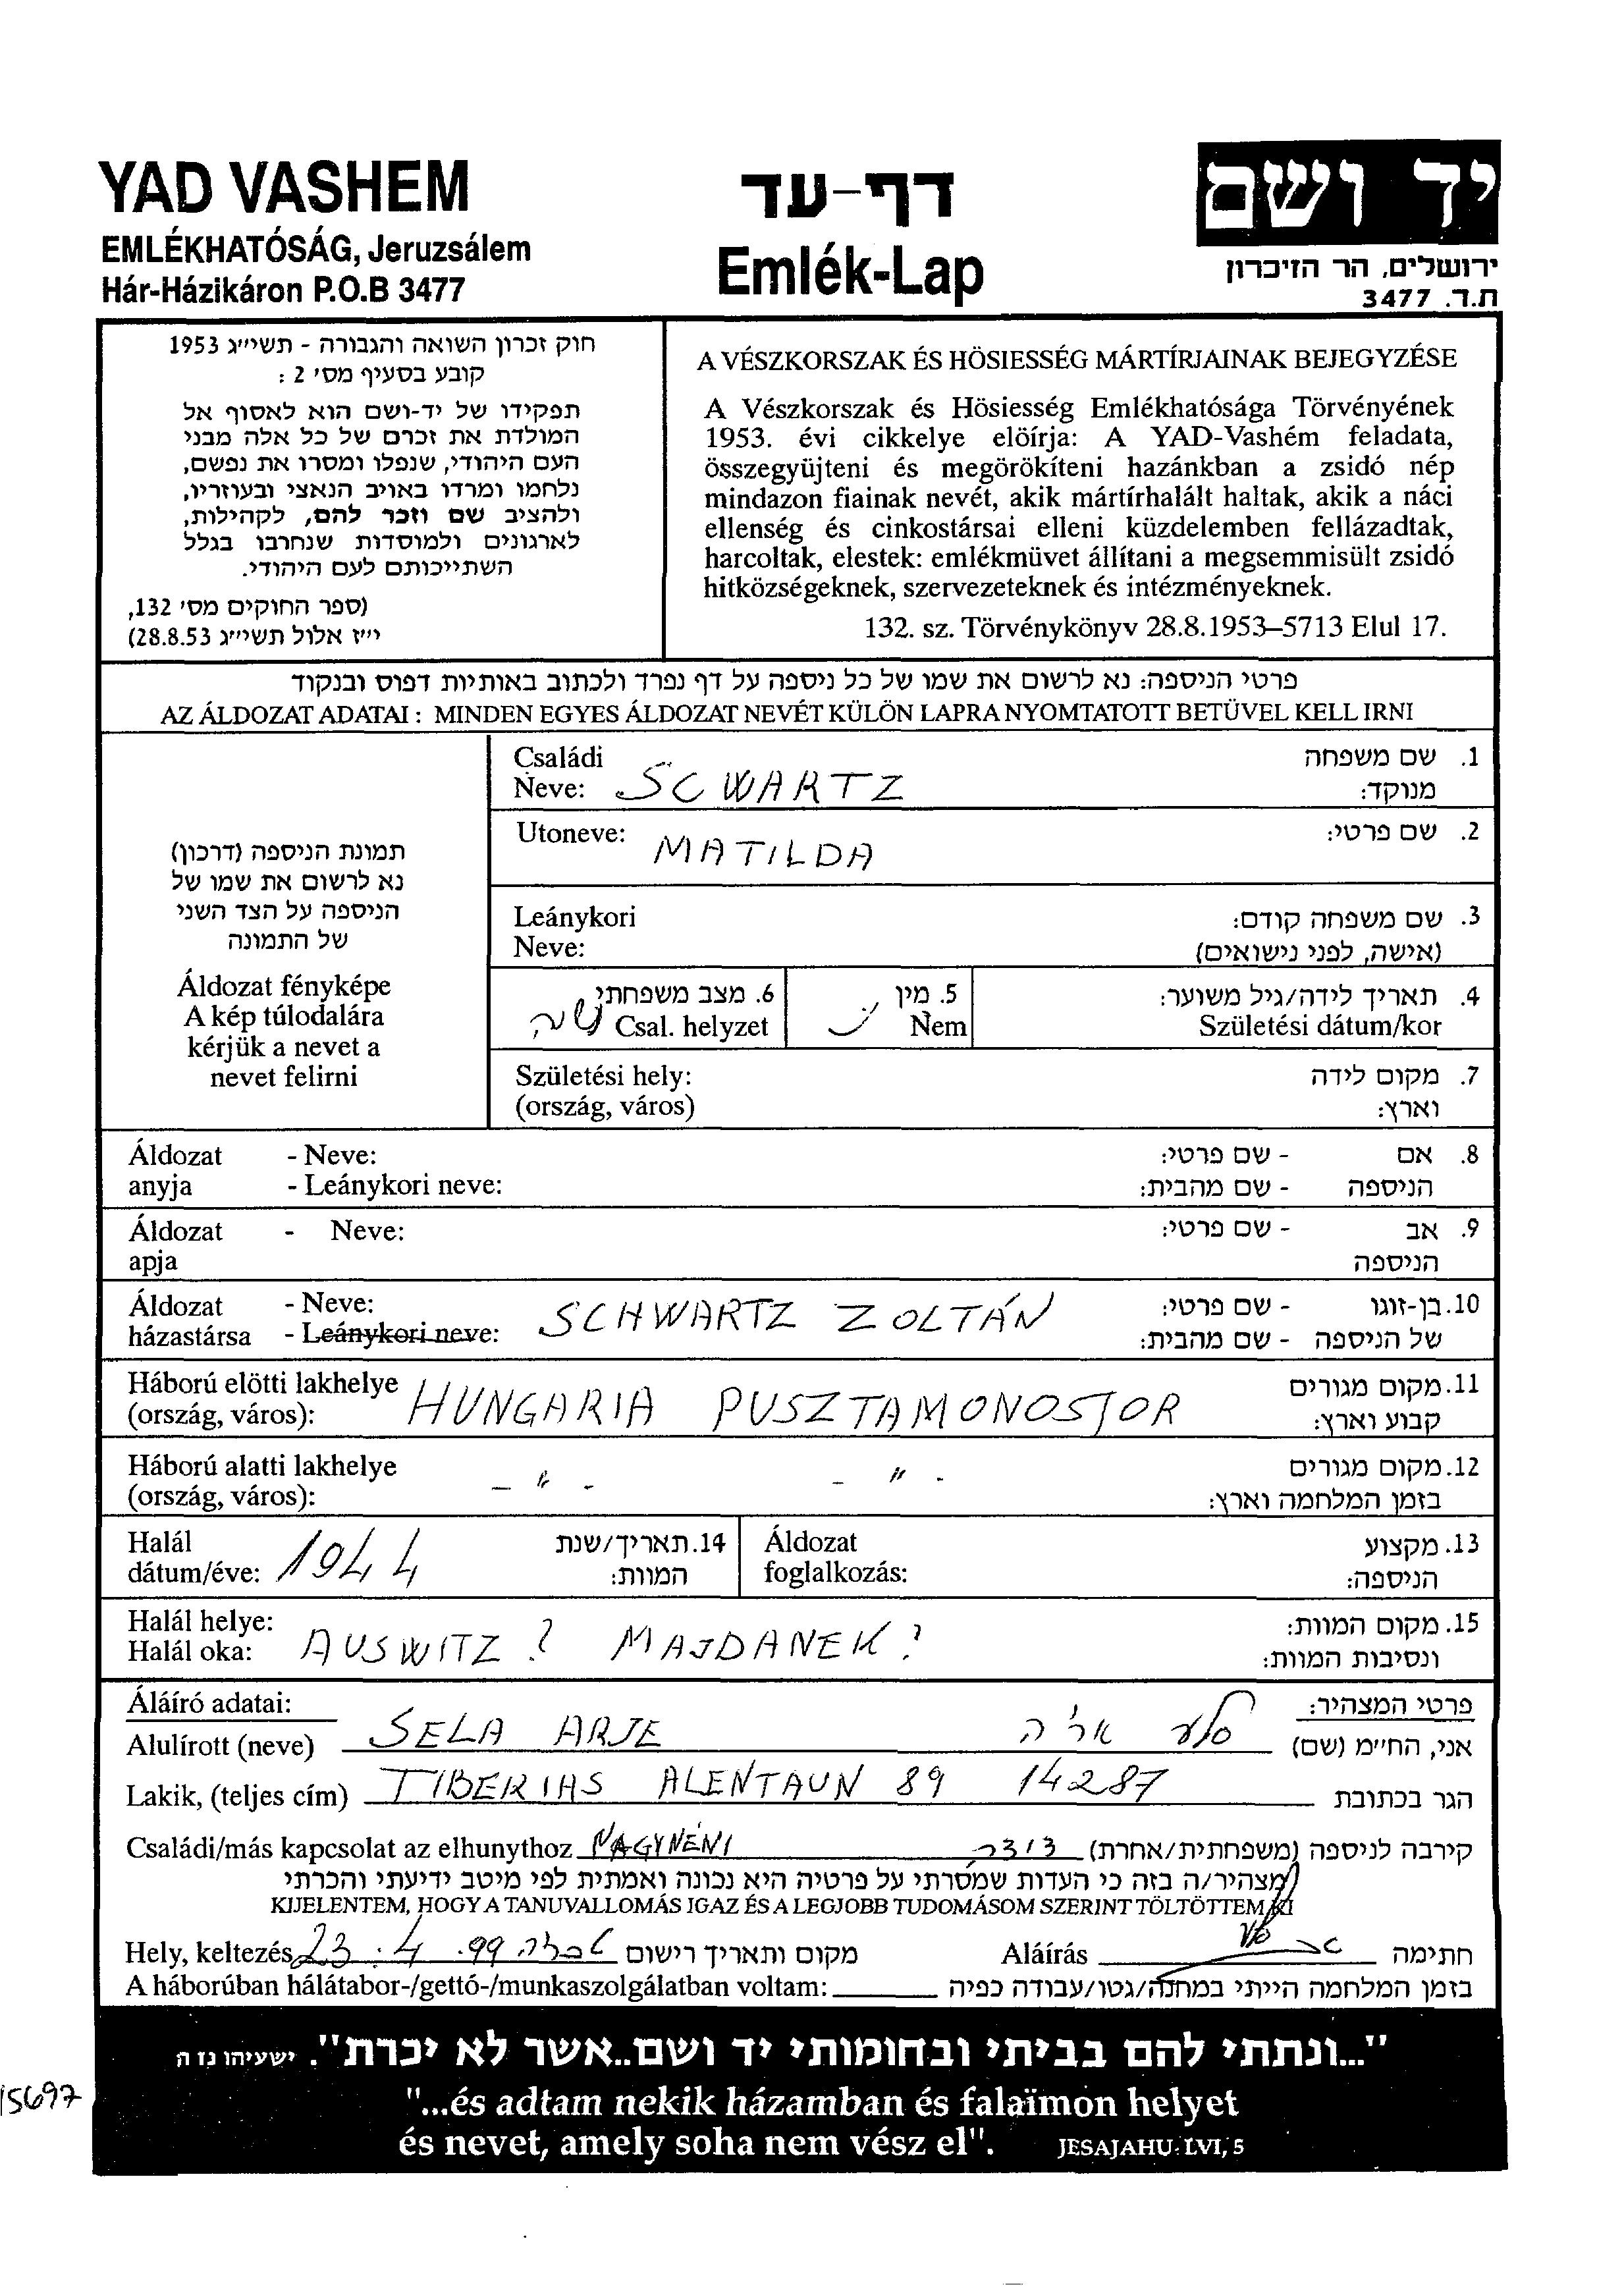 YAD VASHEM
EMLÉKHATÓSÁG, Jeruzsálem
Hár-Házikáron P.O.B 3477
דף-עד
Emlék-Lap
יד ושם
ירושלים, הר הזיכרון
ת.ד. 3477
חוק זכרון השואה והגבורה - תשי״ג 1953
קובע בסעיף מס׳ 2 :
תפקידו של יד-ושם הוא לאסוף אל
המולדת את זכרם של כל אלה מבני
העם היהודי, שנפלו ומסרו את נפשם,
נלחמו ומרדו באויב הנאצי ובעוזריו,
ולהציב שם וזכר להם, לקהילות,
לארגונים ולמוסדות שנחרבו בגלל
השתייכותם לעם היהודי.
(ספר החוקים מס׳ 132,
י״ז אלול תשי״ג 28.8.53)
A VÉSZKORSZAK ÉS HÖSIESSÉG MÁRTÍRJAINAK BEJEGYZÉSE
A Vészkorszak és Hösiesség Emlékhatósága Törvényének
1953. évi cikkelye elöírja: A YAD-Vashém feladata,
összegyüjteni és megörökíteni hazánkban a zsidó nép
mindazon fiainak nevét, akik mártírhalált haltak, akik a náci
ellenség és cinkostársai elleni küzdelemben fellázadtak,
harcoltak, elestek: emlékmüvet állítani a megsemmisült zsidó
hitközségeknek, szervezeteknek és intézményeknek.
132. sz. Törvénykönyv 28.8.1953–5713 Elul 17.
פרטי הניספה: נא לרשום את שמו של כל ניספה על דף נפרד ולכתוב באותיות דפוס ובנקוד
AZ ÁLDOZAT ADATAI : MINDEN EGYES ÁLDOZAT NEVÉT KÜLÖN LAPRA NYOMTATOTT BETÜVEL KELL IRNI
תמונת הניספה (דרכון)
נא לרשום את שמו של
הניספה על הצד השני
של התמונה
Áldozat fényképe
A kép túlodalára
kérjük a nevet a
nevet felirni
Családi
Neve: SCWARTZ
1. שם משפחה
מנוקד:
Utoneve: MATILDA
2. שם פרטי:
Leánykori
Neve:
3. שם משפחה קודם:
(אישה, לפני נישואים)
6. מצב משפחתי
Csal. helyzet
5. מין
Nem
4. תאריך לידה/גיל משוער:
Születési dátum/kor
Születési hely:
(ország, város)
7. מקום לידה
וארץ:
Áldozat - Neve:
anyja - Leánykori neve:
8. אם - שם פרטי:
הניספה - שם מהבית:
Áldozat - Neve:
apja
9. אב - שם פרטי:
הניספה
Áldozat - Neve:
házastársa - Leánykori neve:
SCHWARTZ ZOLTÁN
10. בן-זוגו - שם פרטי:
של הניספה - שם מהבית:
Háború elötti lakhelye
(ország, város):
HUNGARIA PUSZTAMONOSTOR
11. מקום מגורים
קבוע וארץ:
Háború alatti lakhelye
(ország, város):
- " - - " -
12. מקום מגורים
בזמן המלחמה וארץ:
Halál
dátum/éve: 1944
14. תאריך/שנת
המוות:
Áldozat
foglalkozás:
13. מקצוע
הניספה:
Halál helye:
Halál oka: AUSWITZ ? MAJDANEK ?
15. מקום המוות:
ונסיבות המוות:
Áláíró adatai:
פרטי המצהיר:
Alulírott (neve) SELA ARJE
אני, החי״מ (שם) סלע אריה
Lakik, (teljes cím) TIBERIAS ALENTAUN 89 14287 הגר בכתובת
Családi/más kapcsolat az elhunythoz NAGYNÉNI
קירבה לניספה (משפחתית/אחרת) דודה
מצהיר/ה בזה כי העדות שמסרתי על פרטיה היא נכונה ואמתית לפי מיטב ידיעתי והכרתי
KIJELENTEM, HOGY A TANUVALLOMÁS IGAZ ÉS A LEGJOBB TUDOMÁSOM SZERINT TÖLTÖTTEM KI
Hely, keltezés 23.4.99 טבריה מקום ותאריך רישום
Aláírás חתימה
A háborúban hálátabor-/gettó-/munkaszolgálatban voltam:
בזמן המלחמה הייתי במחנה/גטו/עבודה כפיה
"...ונתתי להם בביתי ובחומותי יד ושם..אשר לא יכרת". ישעיהו נז ה
"...és adtam nekik házamban és falaïmon helyet
és nevet, amely soha nem vész el". JESAJAHU: LVI, 5
15697